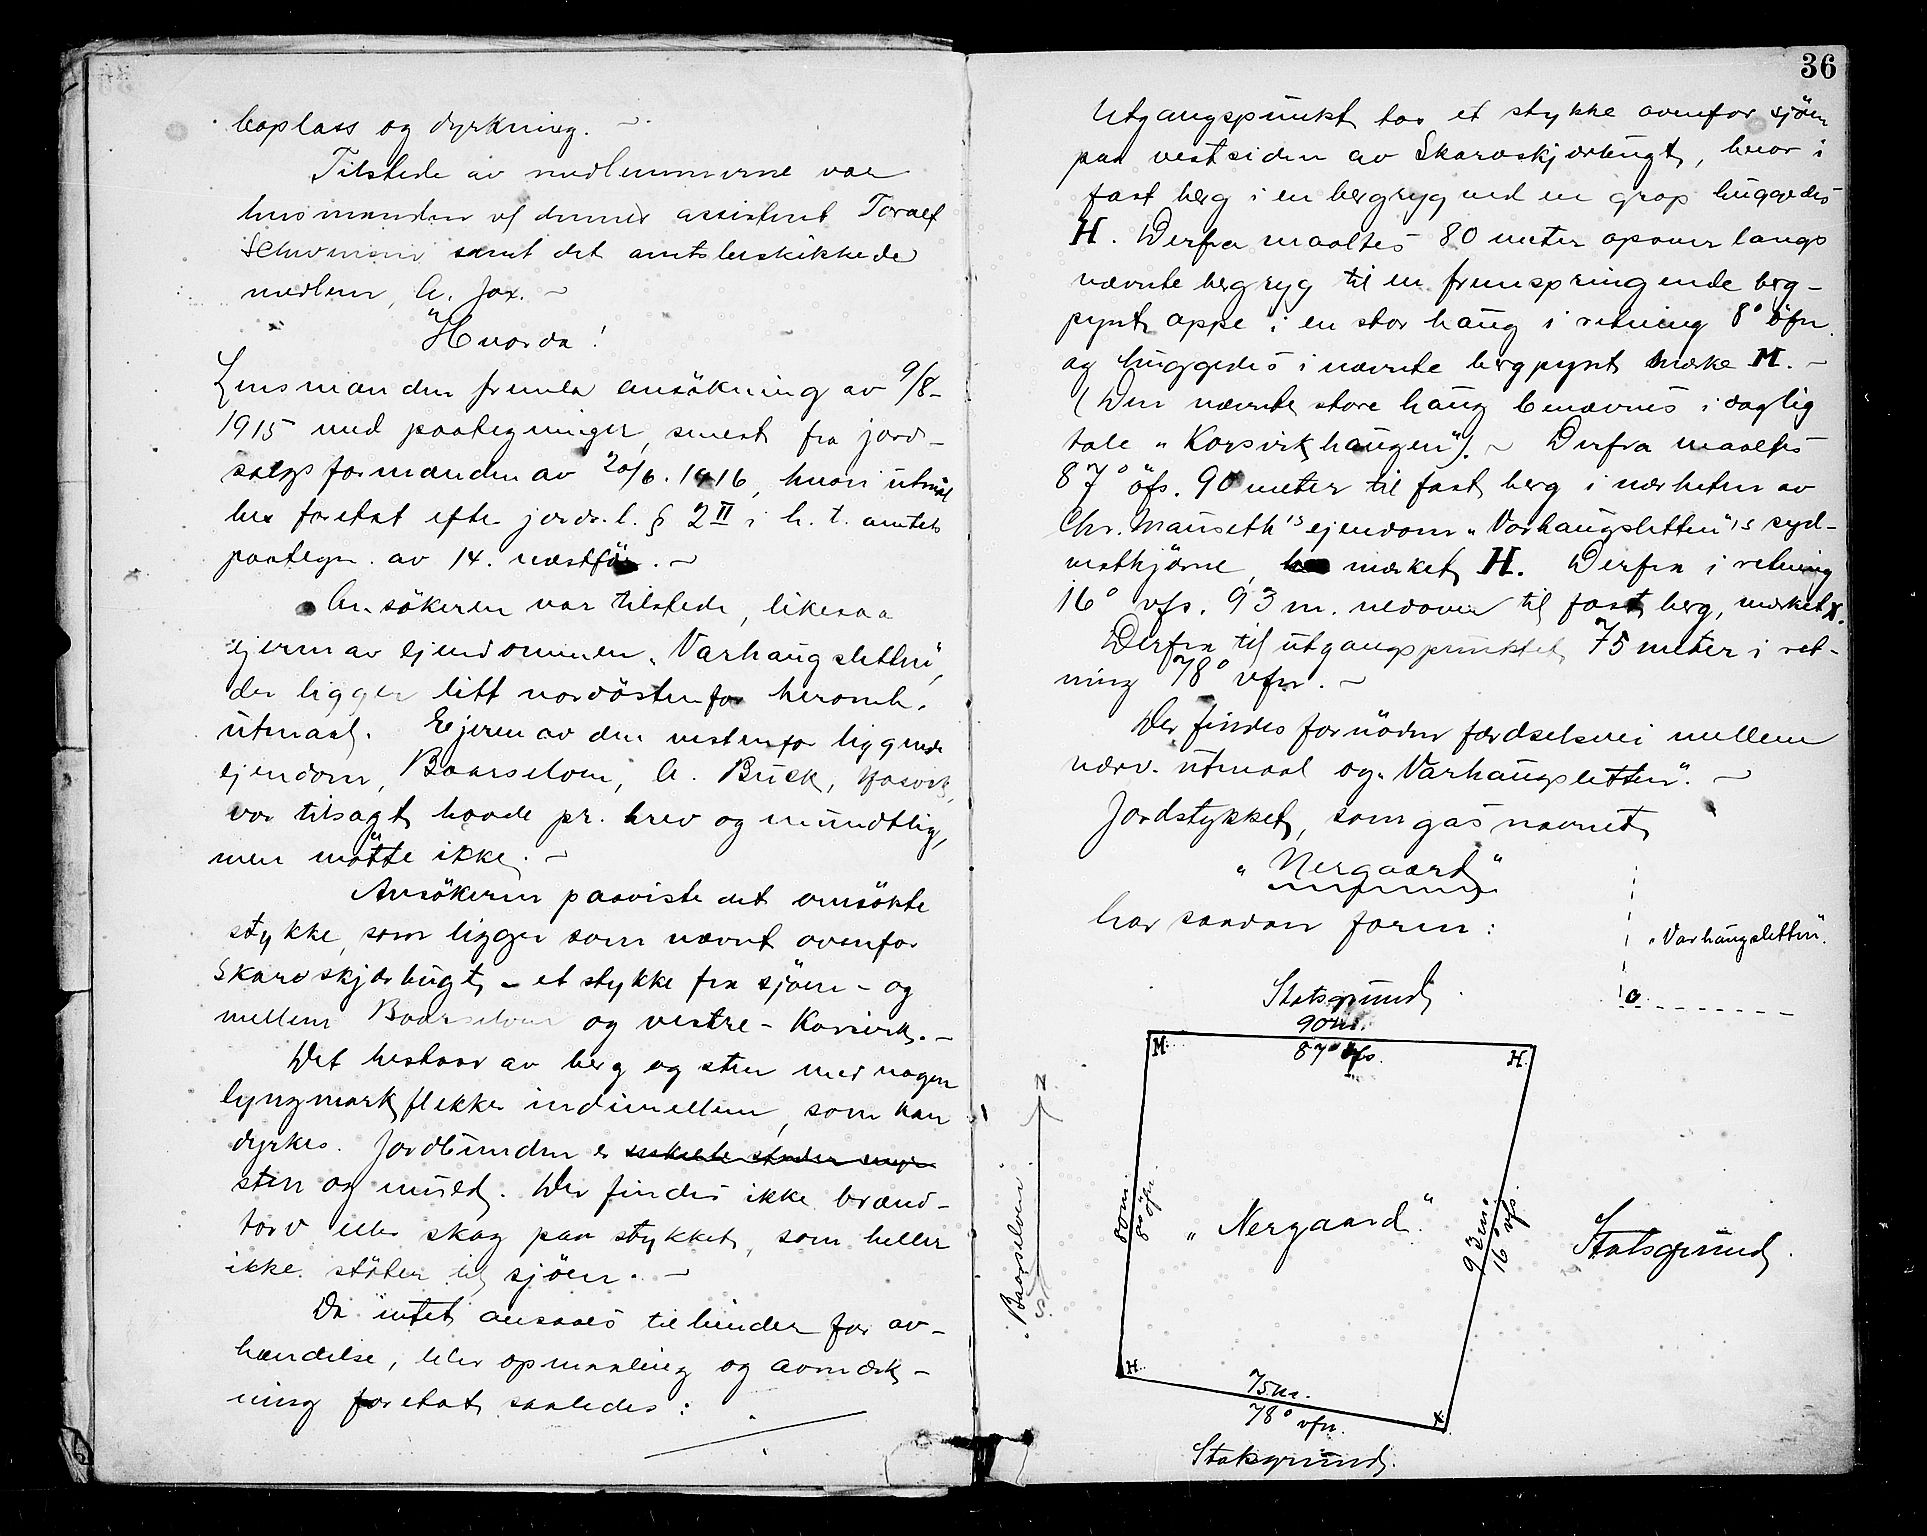 boplass og dyrkning. —
Tilstede av medlemmerne var
lensmanden ved dennes assistent Toralf
Schwensen samt det amtsbeskikkede
medlem, A. Jax. —
Hvorda!
Lensmanden fremla ansökning av 9/8-
1915 med paategninger, senest fra jord-
salgsformanden av 20/6. 1916, hvori utmål
bes foretat efter jords. l. § 2 II i h. t. amtets
paategn. av 14. næstför. —
Ansökeren var tilstede, likesaa
ejeren av ejendommen „Varhaugsletten",
der ligger litt nordöstenfor heromh.
utmaal. Ejeren av den vestenfor liggende
ejendom, Baarselven, A. Buck,
var tilsagt baade pr. brev og mundtlig,
men mötte ikke. —
Ansökeren paaviste det omsökte
stykke, som ligger som nævnt ovenfor
Skarvskjærbugt, – et stykke fra sjöen – og
mellem Baarselven og vestre - Korsvik. —
Det bestaar av berg og sten med nogen
lyngmarkflekker indimellem, som kan
dyrkes. Jordbunden er enkelte steder myr
sten og muld. Der findes ikke brænd-
torv eller skog paa stykket, som heller
ikke stöter til sjöen. —
Da intet ansaaes til hinder for av-
hændelse, blev opmaaling og avmerk-
ning foretat saaledes:
36
Utgangspunkt tas et stykke ovenfor sjöen
paa vestsiden av Skarvskjærbugt, hvor i
fast berg i en bergryg ved en grop huggedes
H. Derfra maaltes 80 meter opover langs
nævnte bergryg til en fremspringende berg-
pynt oppe i en stor haug i retning 8° öfn.
og huggedes i nævnte bergpynt merke M. —
(Den nævnte store haug benævnes i daglig
tale „Korsvikhaugen"). — Derfra maaltes
87° öfs. 90 meter til fast berg i nærheten av
Chr. Mauseth's ejendom „Varhaugsletten"'s syd-
vesthjörne, merket H. Derfra i retning
16° vfs. 93 m. nedover til fast berg, merket X.
Derfra til utgangspunktet 75 meter i ret-
ning 78° vfn. —
Der findes fornöden færdselsvei mellem
nærv. utmaal og „Varhaugsletten". —
Jordstykket, som gas navnet
„Nergaard"
har saadan form:
„Varhaugsletten".
Statsgrund.
90 m.
87° öfs.
M. H.
N
80 m.
8° öfn.
„Nergaard."
93 m.
16° vfs.
Statsgrund.
Baarselven
S
H X
75 m.
78° vfn.
Statsgrund.